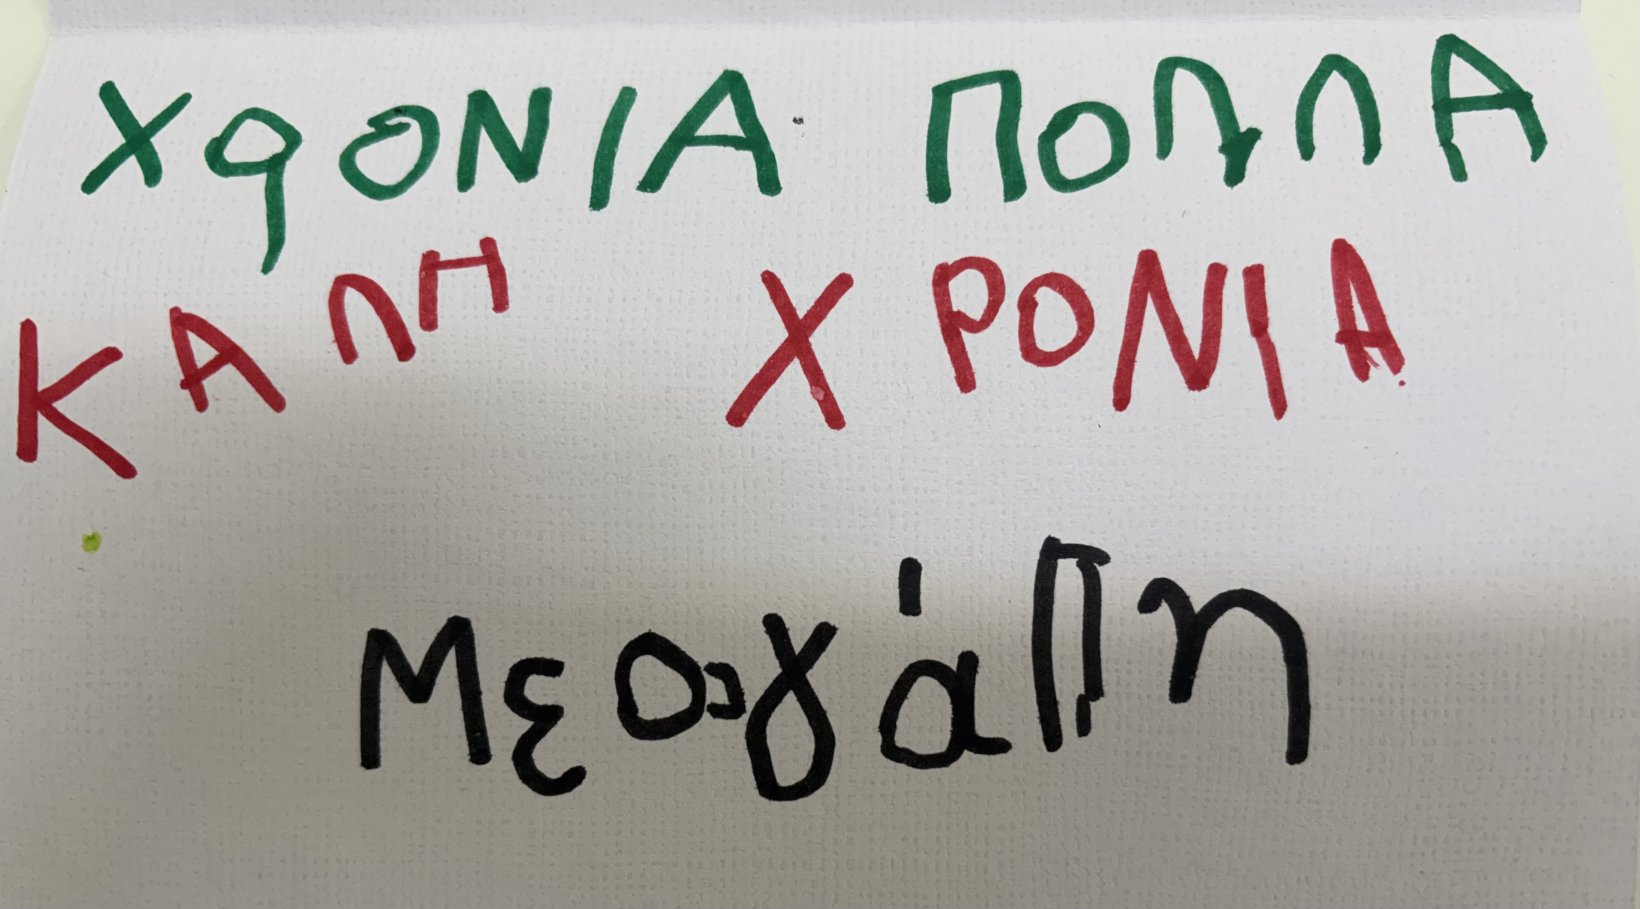 ΧΡΟΝΙΑ ΠΟΛΛΑ
ΚΑΛΗ ΧΡΟΝΙΑ
Με αγάπη